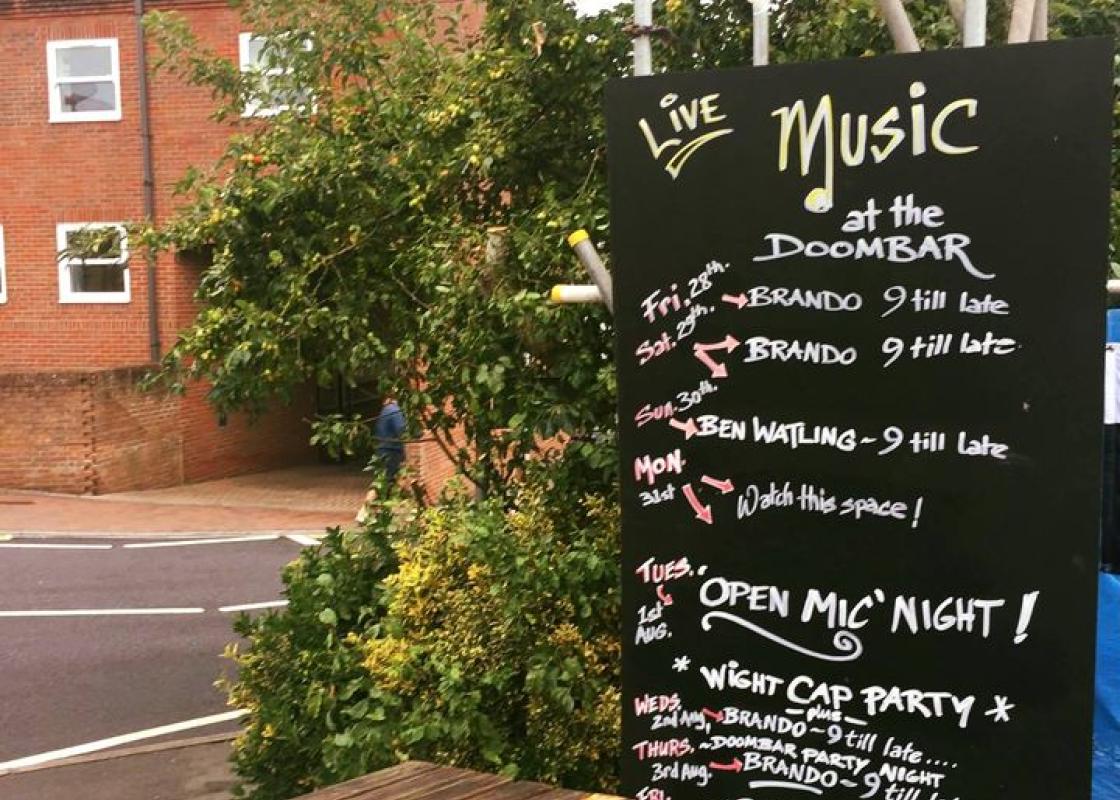 LIVE MUSIC
at the
DOOMBAR
Fri. 28th. BRANDO 9 till late
Sat. 29th. BRANDO 9 till late
Sun. 30th.
BEN WATLING ~ 9 till late
MON.
31st Watch this space!
TUES.
1st AUG. OPEN MIC' NIGHT!
* WIGHT CAP PARTY *
plus
WEDS.
2nd Aug, BRANDO ~ 9 till late....
THURS. ~ DOOMBAR PARTY NIGHT
3rd Aug. BRANDO ~ 9 till late
FRI.